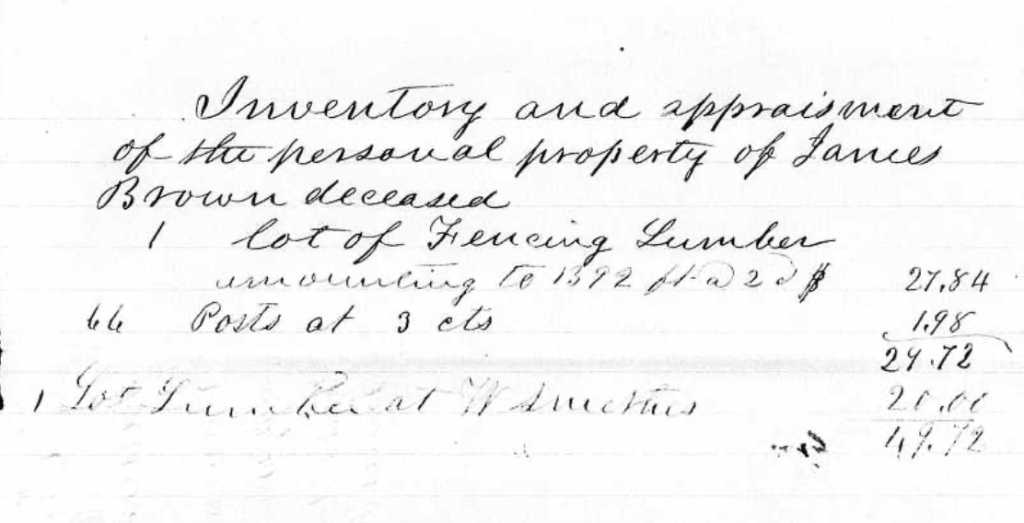 Inventory and appraisment
of the personal property of James
Brown deceased
1 lot of Fencing Lumber
amounting to 1392 ft a 2 d $ 27.84
66 Posts at 3 cts 1.98
29.72
1 Lot Lumber at W 20.00
49.72